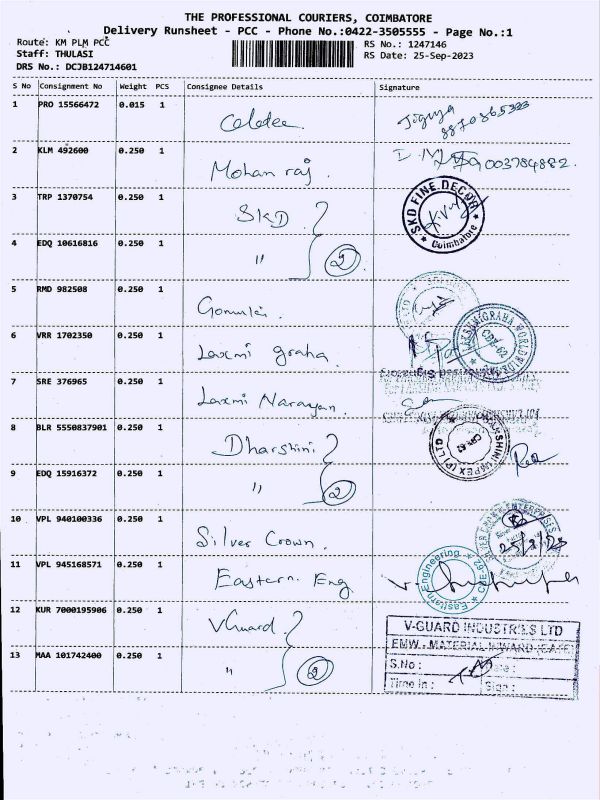 THE PROFESSIONAL COURIERS, COIMBATORE
Delivery Runsheet - PCC - Phone No.:0422-3505555 - Page No.:1
Route: KM PLM PCC
RS No.: 1247146
Staff: THULASI
RS Date: 25-Sep-2023
DRS No.: DCJB124714601
S No Consignment No Weight PCS Consignee Details Signature
1 PRO 15566472 0.015 1
2 KLM 492600 0.250 1 Mohan raj. 9003784882.
3 TRP 1370754 0.250 1 SKD. SKD FINE DECOR Coimbatore
4 EDQ 10616816 0.250 1 " 2
5 RMD 982508 0.250 1
6 VRR 1702350 0.250 1 Laxmi graha. CBE-62
7 SRE 376965 0.250 1 Laxmi Narayan.
8 BLR 5550837901 0.250 1 Dharshini
9 EDQ 15916372 0.250 1 " 2
10 VPL 940100336 0.250 1 Silver Crown.
11 VPL 945168571 0.250 1 Eastern Eng Eastern Engineering CBE-62
12 KUR 7000195906 0.250 1 VGuard.
V-GUARD INDUSTRIES LTD
EMW - MATERIAL INWARD
13 MAA 101742400 0.250 1 " 2 S.No :
Time In : Sign :